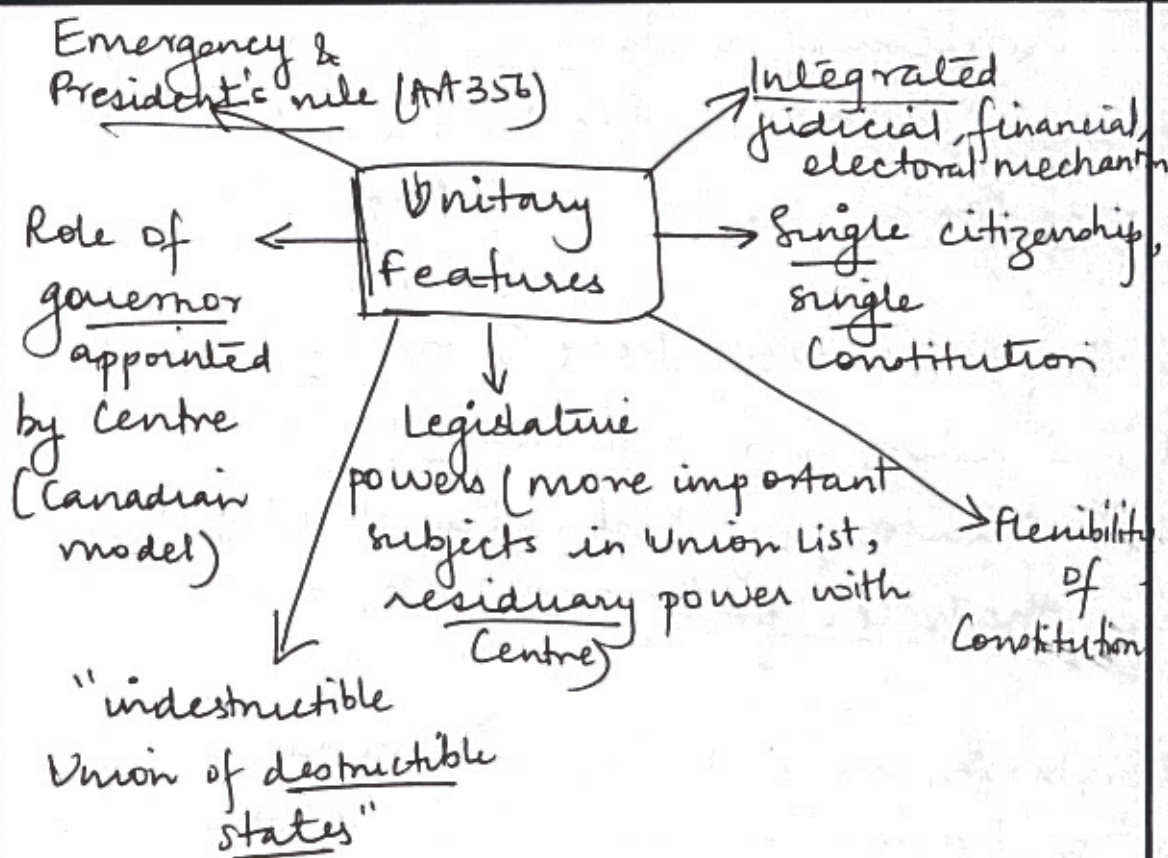 Emergency &
President's rule (Art 356)
Integrated
judicial, financial,
electoral mechanism
Unitary
features
Role of
governor
appointed
by Centre
(Canadian
model)
Single citizenship,
single
Constitution
Legislative
powers (more important
subjects in Union List,
residuary power with
Centre)
Flexibility
of
Constitution
"indestructible
Union of destructible
states"